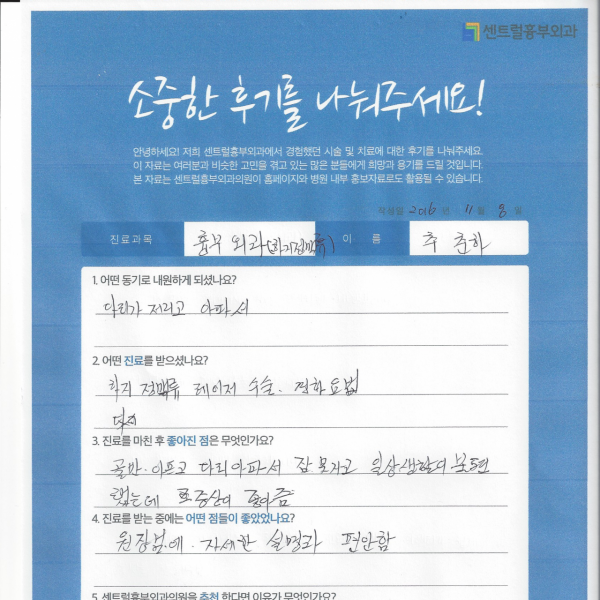 센트럴흉부외과
소중한 후기를 나눠주세요!
안녕하세요! 저희 센트럴흉부외과에서 경험했던 시술 및 치료에 대한 후기를 나눠주세요.
이 자료는 여러분과 비슷한 고민을 겪고 있는 많은 분들에게 희망과 용기를 드릴 것입니다.
본 자료는 센트럴흉부외과의원이 홈페이지와 병원 내부 홍보자료로도 활용될 수 있습니다.
작성일 2016 년 11 월 8 일
진료과목 흉부외과(하지정맥류) 이 름 추춘하
1. 어떤 동기로 내원하게 되셨나요?
다리가 저리고 아파서
2. 어떤 진료를 받으셨나요?
하지 정맥류 레이저 수술. 경화요법
3. 진료를 마친 후 좋아진 점은 무엇인가요?
골반.아프고 다리아파서 잠못자고 일상생활이 불편
했는데 증상이 좋아즘
4. 진료를 받는 중에는 어떤 점들이 좋았었나요?
원장님.에. 자세한 설명과 편안함
5. 센트럴흉부외과의원을 추천 한다면 이유가 무엇인가요?